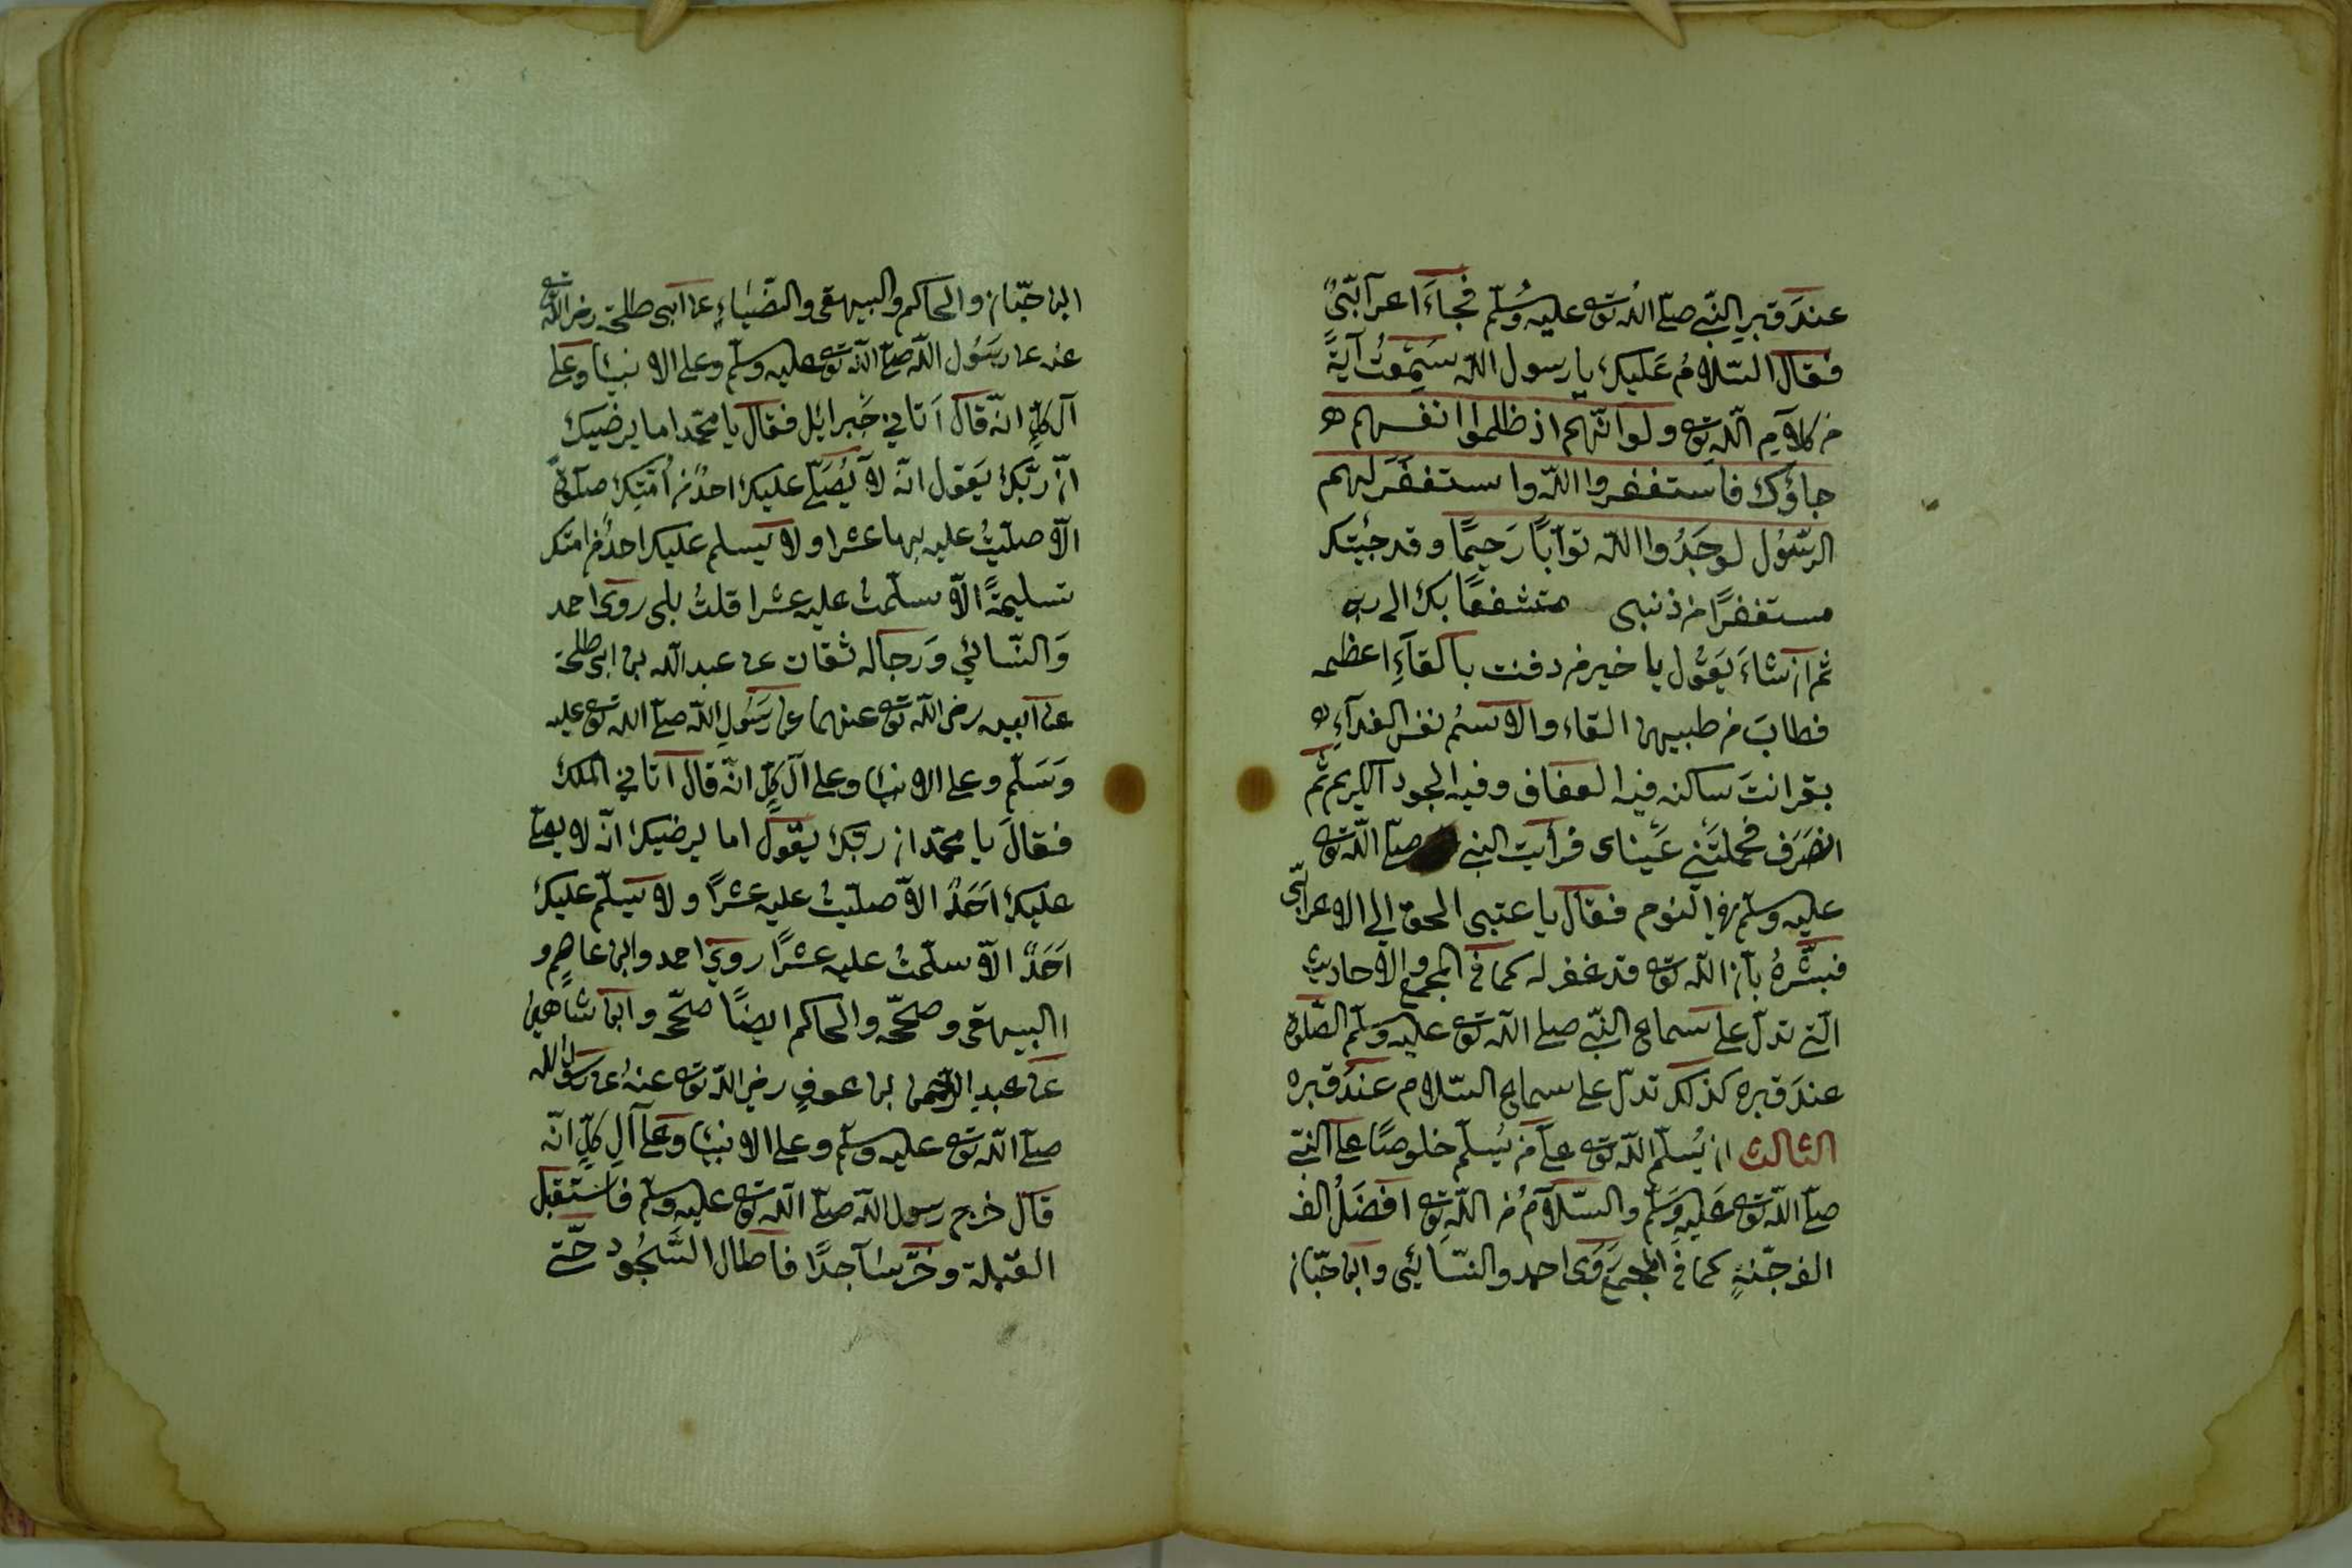 عند قبر النّبي صلّى الله تعه عليه وسلّم فجاءَ اعرآبّيٌ
فقال السّلامُ عَليك يا رسول الله سَمِعتُ آيَةً
من كلاَمِ الله تعه ولو انّهم اذ ظلموا انفسهم
جاؤك فاستغفروا الله واستغفرَ لهم
الرّسُول لوجَدُوا الله توّابًا رَحيمًا وقد جئتك
مستغفرًا من ذنبى متشفعًا بك الى ربى
ثم انشاءَ يَقُول يا خير من دفنت بالقآءِ اعظمه
فطابَ من طيبهن القاء والاسمُ نفس الفدآءِ
بقر انتَ ساكنه فيه العفاف وفيه الجود الكريم ثم
انصَرَف فحملتَني عَيناى فرأيت النبي صلّى الله تعه
عليه وسلّم في النوم فقال يا عتبى الحق الى الاعرابّي
فبشّرهُ بأن الله تعه قد غفر له كما في المجمع والاحاديث
الّتي تدلّ على سماع النّبي صلى الله تعه عليه وسلّم الصّلوة
عندَ قبره كذلك تدلّ على سماع السّلام عندَ قبره
الثالث ان يُسلّم الله تعه على من يُسلّم خلوصًا على النّبي
صلّى الله تعه عَليهِ وَسَلّم والسّلاَمُ من الله تعه افضَلُ الف
الف جّنةٍ كما في المجمع رَوَى احمد والنّسائي وابن حبّان
ابن حبّان والحاكم والبيهقى والضّيَاءِ عن ابى طلحة رضى الله تعه
عنه عن رسُول الله صلّى الله تعه عليه وسلّم وعلى الانبياء وعلى
آل كلٍّ انّه قال اَتاني جَبرائل فقال يا محّمد اما يرضيك
انّ ربّك يَقول انّه لاَ يُصَلّي عليك احدٌ من اُمّتك صلوةً
الاّ صليتُ عليه بها عشرا ولا يسلم عليك احدٌ من امتك
تسليمةً الاّ سلّمتُ عليه عشرا قلتُ بلى روى احمد
وَالنّسائي وَرجاله ثقات عن عبد الله بن ابى طلحة
عن ابيه رضى الله تعه عنهما عن رَسُولِ الله صلّى الله تعه عليه
وَسَلّم وعلى الانبياء وعلى آل كلٍّ انّه قال اَتاني الملك
فقالَ يا محّمد ان ربّك يقول اما يرضيك انّه لا يصلّي
عليك اَحَدٌ الاّ صليتُ عليه عشرًا ولا يَسلّم عليك
اَحَدٌ الاّ سلّمتُ عليه عشرًا روى احمد وابن عاصمٍ و
البيهقى وصحّحه والحاكم ايضًا صحّحه وابن شاهين
عن عبد الرّحمن بن عوفٍ رضي الله تعه عنهُ عن رسول الله
صلّى الله تعه عليه وسلّم وعلى الانبياء وعَلى آلِ كلٍّ انّه
قال خرج رسول الله صلّى الله تعه عليه وسلّم فاستَقبل
القبلة وخرّ ساَجدًا فأطال السّجُود حّتى